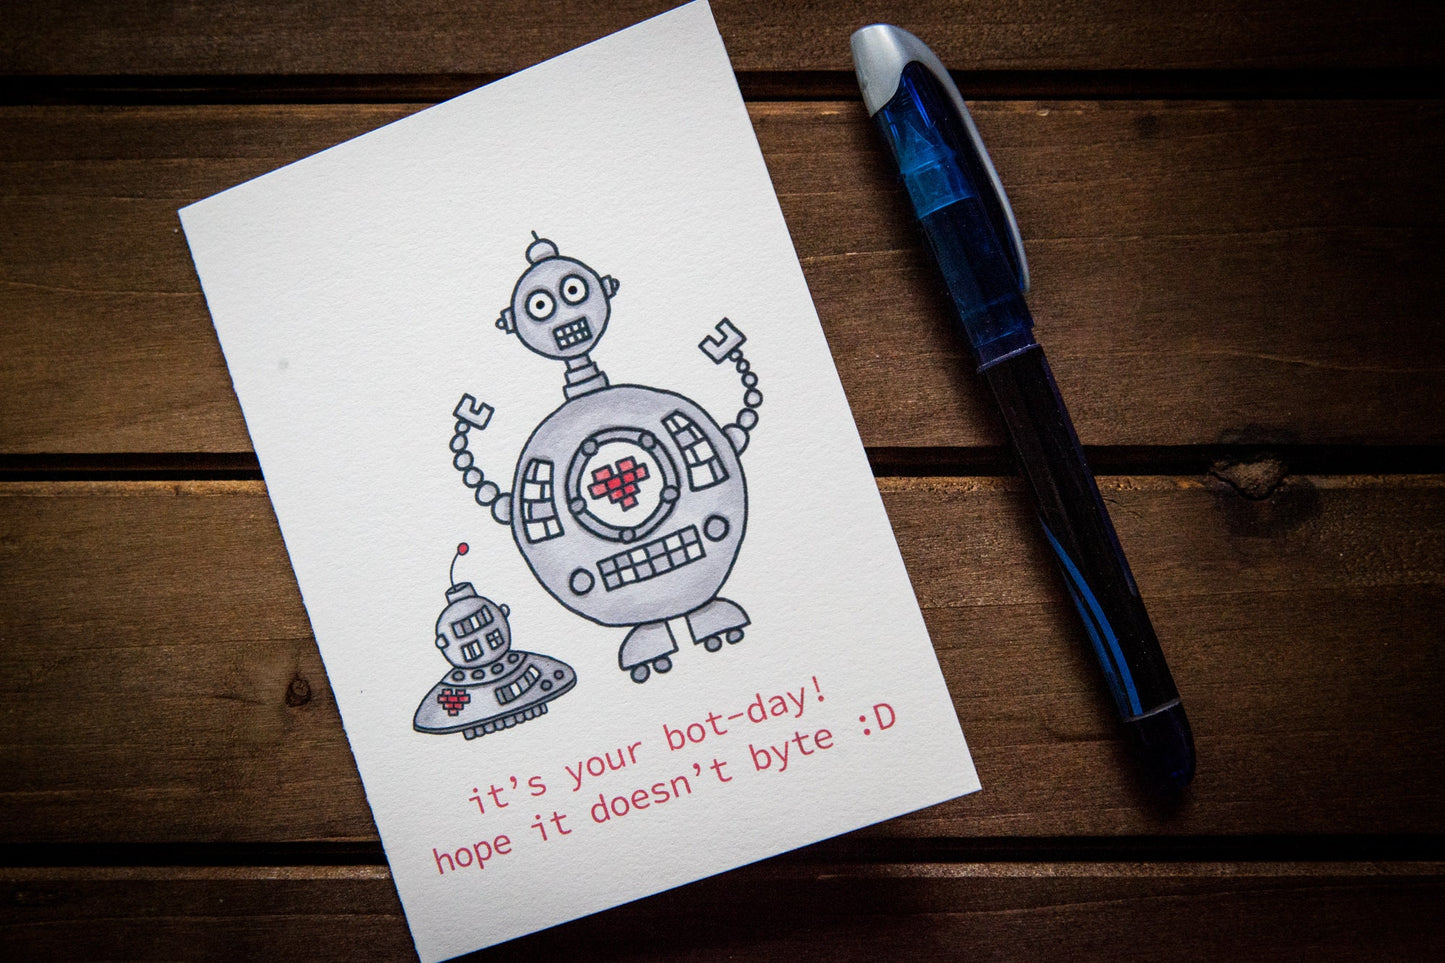 it’s your bot-day!
hope it doesn’t byte :D